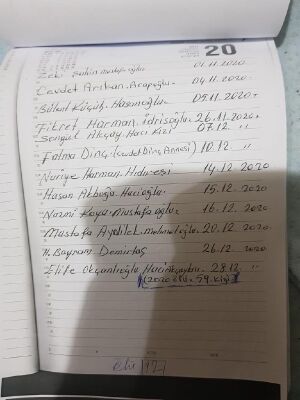 20
Zeki Şahin Mustafaoğlu. 01.11.2020.
Cevdet Arıkan. Arapoğlu. 04.11.2020.
Bülent Küçük. Hasanoğlu. 05.11.2020.
Fikret Harman. İdrisoğlu. 26.11.2020.
Songül Akçay. Hacı Kızı 07.12. "
Fatma Dinç. (Cevdet Dinç Annesi) 10.12. "
Nuriye Harman. 14.12.2020
Hasan Akboğa. Hacıoğlu. 15.12.2020
Nazmi Kaya. Mustafaoğlu. 16.12.2020
Mustafa Mehmetoğlu. 20.12.2020
H. Bayram Demirtaş 26.12.2020
Elife 28.12. "
(2020 59. Kişi)